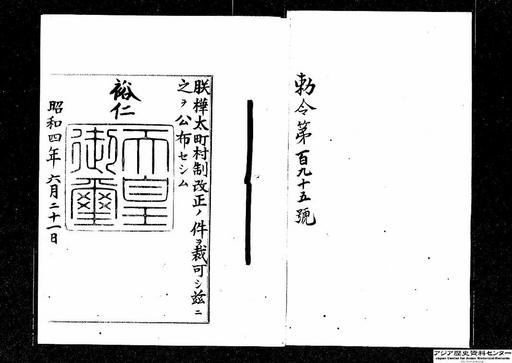 勅令第百九十五號
朕樺太町村制改正ノ件ヲ裁可シ茲ニ
之ヲ公布セシム
裕仁
天皇
御璽
昭和四年六月二十一日
アジア歴史資料センター
Japan Center for Asian Historical Records